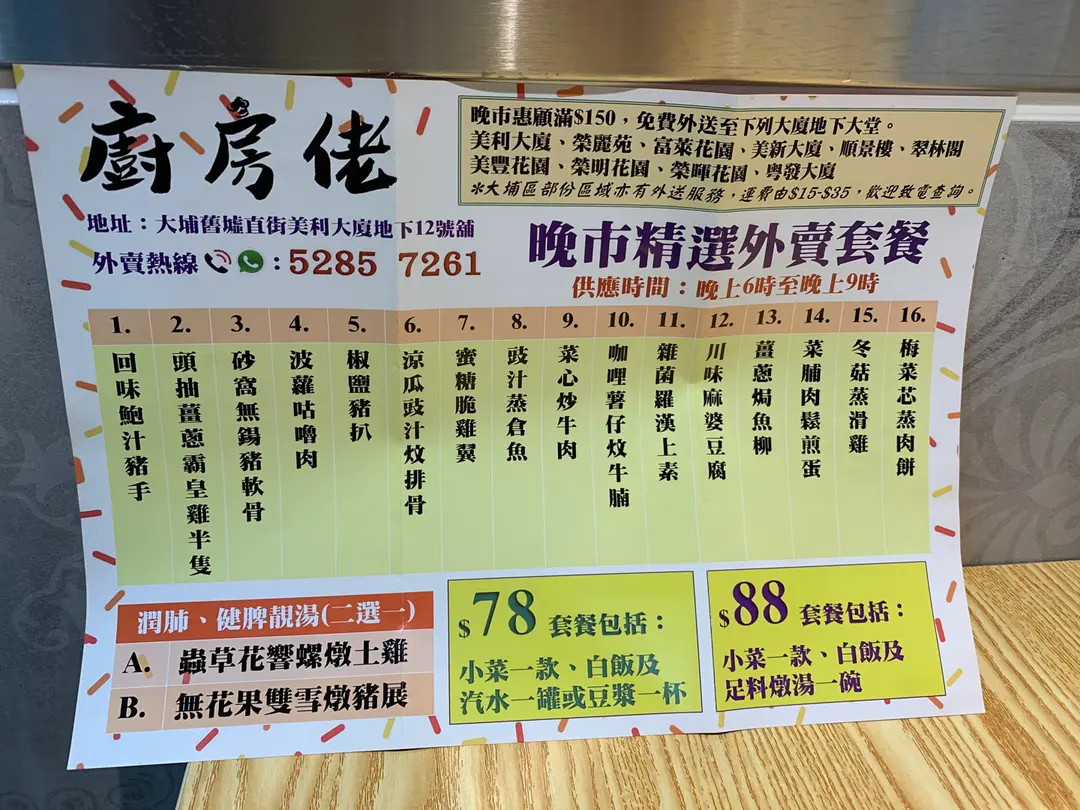 廚房佬
地址：大埔舊墟直街美利大廈地下12號舖
外賣熱線：5285 7261
晚市惠顧滿$150，免費外送至下列大廈地下大堂。
美利大廈、榮麗苑、富萊花園、美新大廈、順景樓、翠林閣
美豐花園、榮明花園、榮暉花園、粵發大廈
*大埔區部份區域亦有外送服務，運費由$15-$35，歡迎致電查詢。
晚市精選外賣套餐
供應時間：晚上6時至晚上9時
1. 回味鮑汁豬手
2. 頭抽薑蔥霸皇雞半隻
3. 砂窩無錫豬軟骨
4. 波蘿咕嚕肉
5. 椒鹽豬扒
6. 涼瓜豉汁炆排骨
7. 蜜糖脆雞翼
8. 豉汁蒸倉魚
9. 菜心炒牛肉
10. 咖哩薯仔炆牛腩
11. 雜菌羅漢上素
12. 川味麻婆豆腐
13. 薑蔥焗魚柳
14. 菜脯肉鬆煎蛋
15. 冬菇蒸滑雞
16. 梅菜芯蒸肉餅
潤肺、健脾靚湯(二選一)
A. 蟲草花響螺燉土雞
B. 無花果雙雪燉豬展
$78 套餐包括：
小菜一款、白飯及
汽水一罐或豆漿一杯
$88 套餐包括：
小菜一款、白飯及
足料燉湯一碗